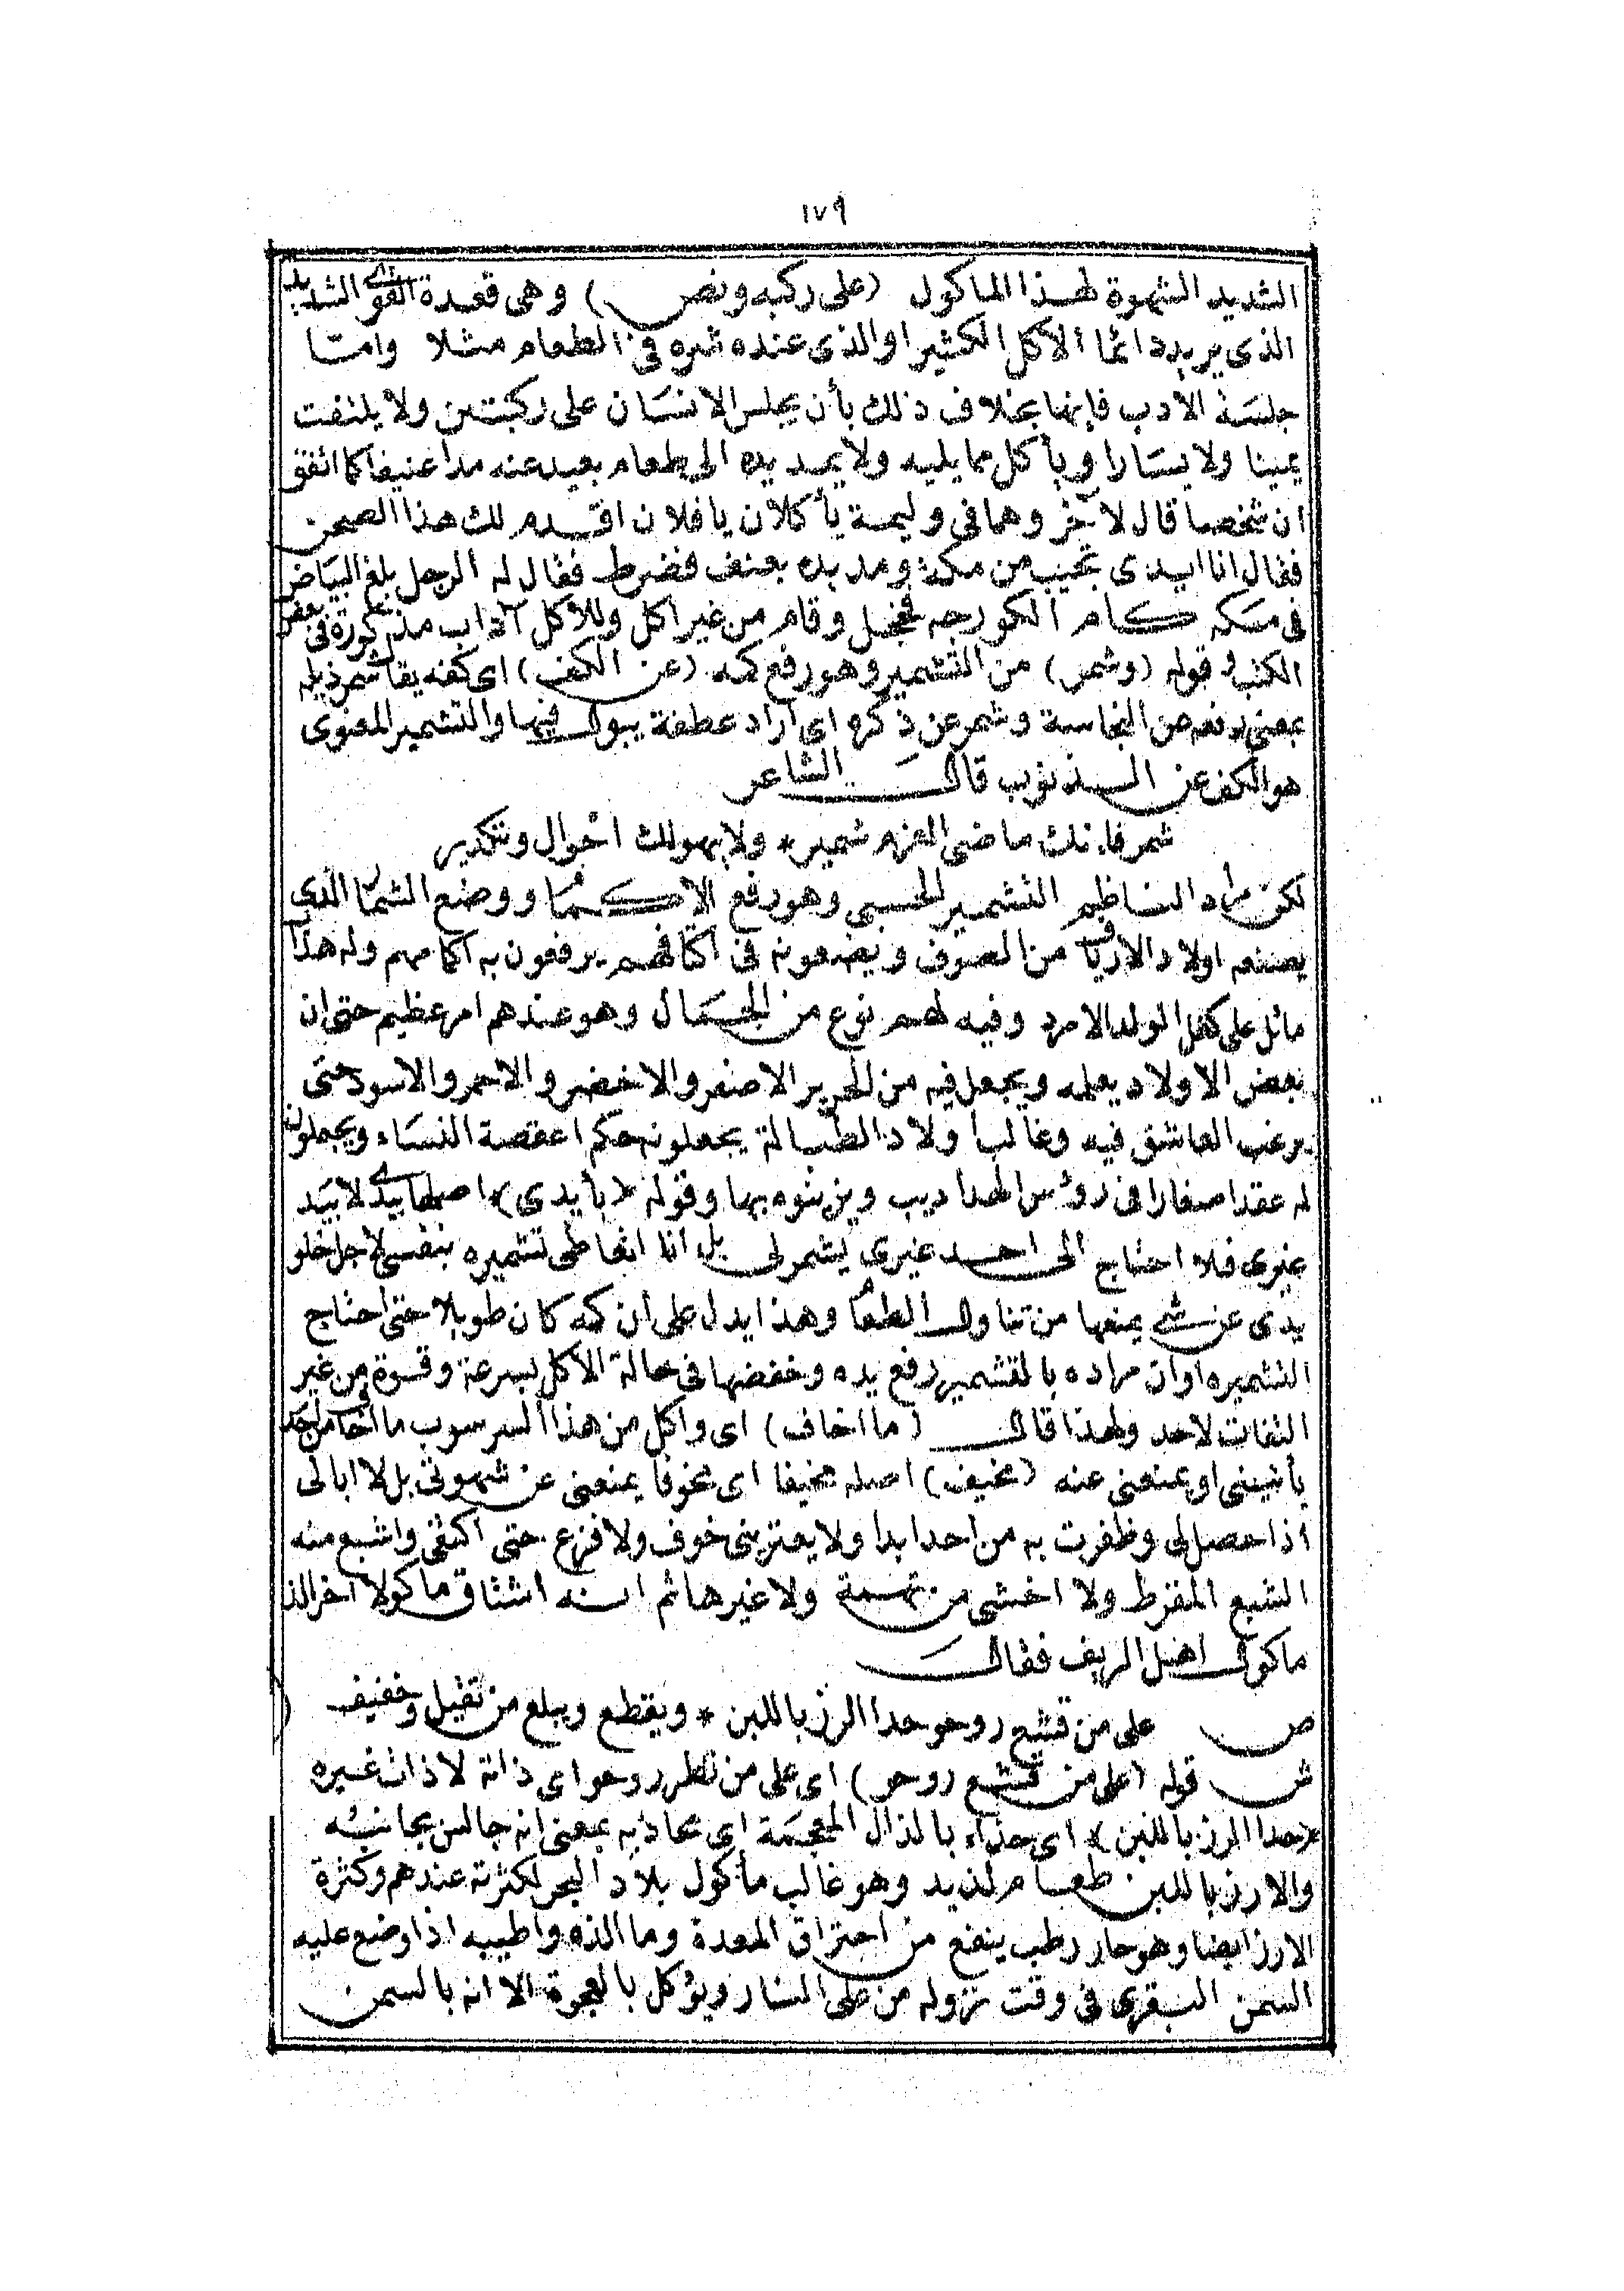 ١٧٩
الشديد الشهوة لهذا الماكول (على ركبه ونص) وهى قعدة القوى الشديد
الذى يريد دائما الأكل الكثير او الذى عنده شره فى الطعام مثلا وامّا
جلسة الادب فإنها بخلاف ذلك بأن يجلس الانسان على ركبتين ولا يلتفت
يمينا ولا يسارا ويأكل مما يليه ولا يمد يده الى طعام بعيد عنه مدا عنيفا كما اتفق
ان شخصا قال لآخر وهما فى وليمة يأكلان يا فلان اقدم لك هذا الصحن
فقال انا ايدى تجيب من مكة ومد يده بعنف فضرط فقال له الرجل بلغ البياض
فى مسكه كام الكورجه فخجل وقام من غير اكل وللأكل آداب مذكورة فى بعض
الكتب وقوله (وشمر) من التشمير وهو رفع كمه (عن الكف) اى كفه يقا شمر ذيله
بمعنى رفعه من النجاسة وشمر عن ذكره اى اراد عطفة يبول فيها والتشمير المعنوى
هو الكف عن الذنوب قال الشاعر
شمر فانك ماضى العزم شمير * ولا يهولك احوال وتكدير
لكن مراد الناظم التشمير الحسى وهو رفع الاكمام ووضع الشمار الذى
يصنعه اولاد الارياف من الصوف ويضعونه فى اكتافهم يرفعون به اكمامهم وله هذا
مائل على كفل الولد الامرد وفيه لهم نوع من الجمال وهو عندهم امر عظيم حتى ان
بعض الاولاد يعمله ويجعل فيه من الحرير الاصفر والاخضر والاحمر والاسود حتى
يرغب العاشق فيه وغالبا ولاد الطبالة يجعلونه حكم اعقصة النساء ويجعلون
له عقدا صغارا فى رؤس الهداديب ويزينوه بها وقوله (بأيدى) اصلها بيدى لا بيد
غيرى فلا احتاج الى احد غيرى يشمر لى بل انا اتعاطى تشميره بنفسى لأجل خلو
يدى عن شئ يمنعها من تناول الطعام وهذا يدل على أن كمه كان طويلا حتى احتاج
التشميره او ان مراده بالتشمير رفع يده وخفضها فى حالة الأكل بسرعة وقوة من غير
التفات لاحد ولهذا قال (ما اخاف) اى واكل من هذا السرسوب ما اخاف من احد
يأتينى او يمنعنى عنه (مخيف) اصله مخيفا اى مخوفا يمنعنى عن شهوتى بل لا ابالى
اذا حصل لى وظفرت به من احد ابدا ولا يعترينى خوف ولا فزع حتى اكتفى واشبع منه
الشبع المفرط ولا اخشى من تهمة ولا غيرها ثم انه اشتاق ماكولا آخر الذ
ماكول اهل الريف فقال
ص على من قشع روحو حدا الرز باللبن * ويقطع ويبلع من تقيل وخفيف
ش قوله (على من قشع روحو) اى على من نظر روحو اى ذاته لا ذات غيره
(حدا الرز باللبن) اى حذاء بالذال المعجمة اى محاذيه بمعنى انه جالس بجانبه
والارز باللبن طعام لذيذ وهو غالب مأكول بلاد البحر لكثرته عندهم وكثرة
الارز ايضا وهو حار رطب ينفع من احتراق المعدة وما الذه واطيبه اذا وضع عليه
السمن البقرى فى وقت نزوله من على النار ويؤكل بالعجوة الا انه بالسمن